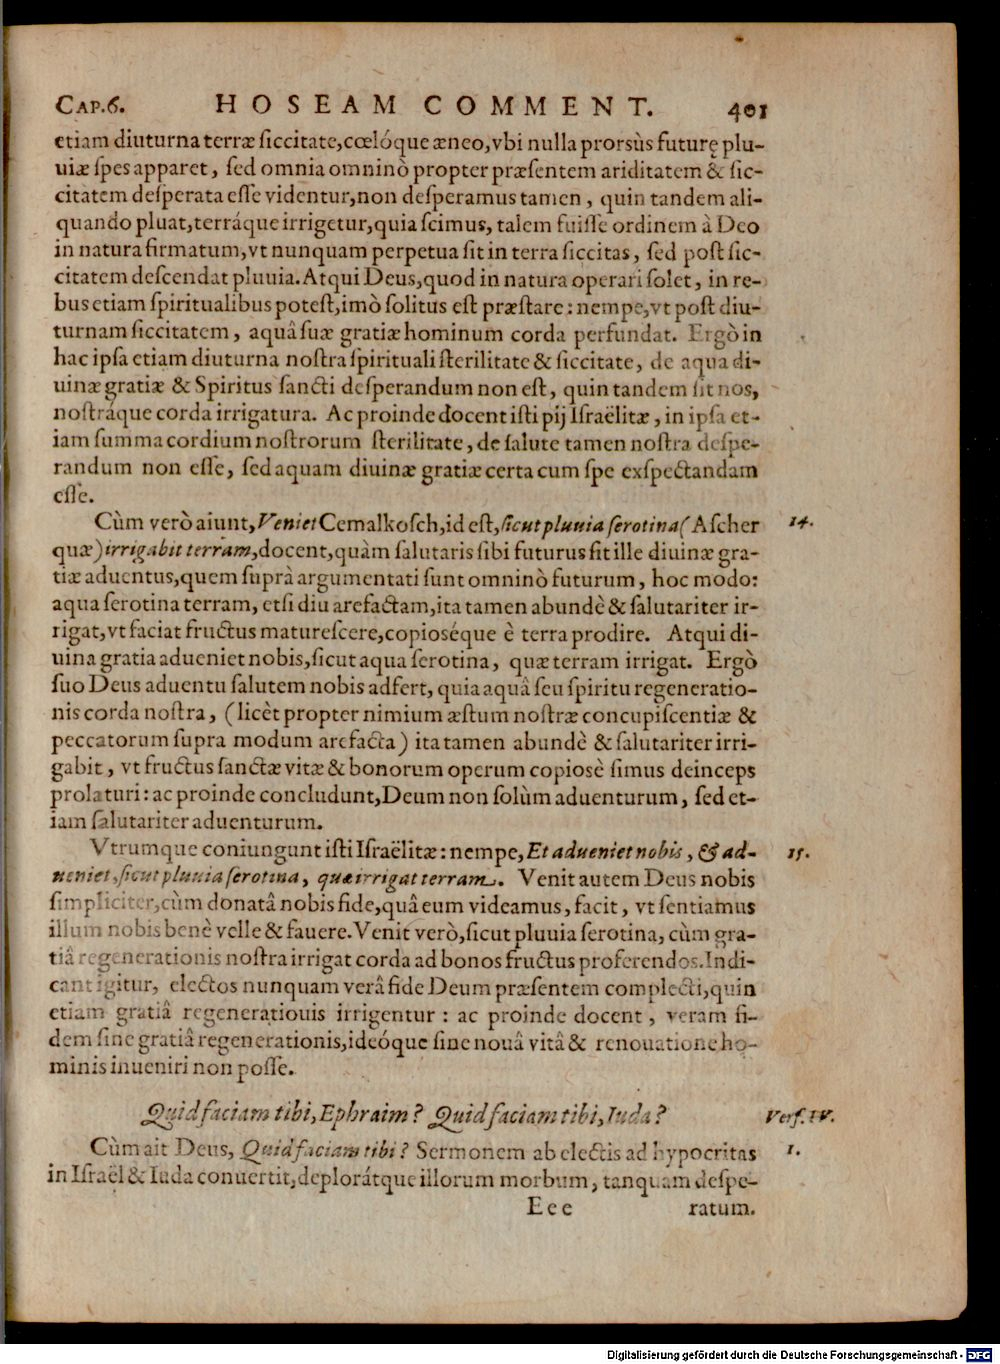 CAP.6. HOSEAM COMMENT. 401
etiam diuturna terræ ſiccitate,cœlóque æneo,vbi nulla prorsùs futurę plu-
uiæ ſpes apparet, ſed omnia omninò propter præſentem ariditatem & ſic-
citatem deſperata eſſe videntur,non deſperamus tamen, quin tandem ali-
quando pluat,terráque irrigetur,quia ſcimus, talem fuiſſe ordinem à Deo
in natura firmatum,vt nunquam perpetua ſit in terra ſiccitas, ſed poſt ſic-
citatem deſcendat pluuia. Atqui Deus,quod in natura operari ſolet, in re-
bus etiam ſpiritualibus poteſt,imò ſolitus eſt præſtare: nempe,vt poſt diu-
turnam ſiccitatem, aquâ ſuæ gratiæ hominum corda perfundat. Ergò in
hac ipſa etiam diuturna noſtra ſpirituali ſterilitate & ſiccitate, de aqua di-
uinæ gratiæ & Spiritus ſancti deſperandum non eſt, quin tandem ſit nos,
noſtráque corda irrigatura. Ac proinde docent iſti pij Iſraëlitæ, in ipſa et-
iam ſumma cordium noſtrorum ſterilitate, de ſalute tamen noſtra deſpe-
randum non eſſe, ſed aquam diuinæ gratiæ certa cum ſpe exſpectandam
eſſe.
Cùm verò aiunt, Veniet Cemalkoſch,id eſt, ſicut pluuia ſerotina (Aſcher 14.
quæ) irrigabit terram, docent,quàm ſalutaris ſibi futurus ſit ille diuinæ gra-
tiæ aduentus,quem ſuprà argumentati ſunt omninò futurum, hoc modo:
aqua ſerotina terram, etſi diu arefactam,ita tamen abundè & ſalutariter ir-
rigat,vt faciat fructus matureſcere,copioséque è terra prodire. Atqui di-
uina gratia adueniet nobis,ſicut aqua ſerotina, quæ terram irrigat. Ergò
ſuo Deus aduentu ſalutem nobis adfert, quia aquâ ſeu ſpiritu regeneratio-
nis corda noſtra, (licèt propter nimium æſtum noſtræ concupiſcentiæ &
peccatorum ſupra modum arefacta) ita tamen abundè & ſalutariter irri-
gabit, vt fructus ſanctæ vitæ & bonorum operum copiosè ſimus deinceps
prolaturi: ac proinde concludunt,Deum non ſolùm aduenturum, ſed et-
iam ſalutariter aduenturum.
Vtrumque coniungunt iſti Iſraëlitæ: nempe, Et adueniet nobis, & ad- 15.
ueniet, ſicut pluuia ſerotina, quæ irrigat terram. Venit autem Deus nobis
ſimpliciter,cùm donatâ nobis fide,quâ eum videamus, facit, vt ſentiamus
illum nobis benè velle & fauere. Venit verò,ſicut pluuia ſerotina, cùm gra-
tiâ regenerationis noſtra irrigat corda ad bonos fructus proferendos. Indi-
cant igitur, electos nunquam verâ fide Deum præſentem complecti,quin
etiam gratiâ regeneratiouis irrigentur: ac proinde docent, veram fi-
dem ſine gratiâ regenerationis,ideóque ſine nouâ vitâ & renouatione ho-
minis inueniri non poſſe.
Quid faciam tibi, Ephraim? Quid faciam tibi, Iuda? Verſ. IV.
Cùm ait Deus, Quid faciam tibi? Sermonem ab electis ad hypocritas 1.
in Iſraël & Iuda conuertit,deplorátque illorum morbum, tanquam deſpe-
Eee ratum.
Digitalisierung gefördert durch die Deutsche Forschungsgemeinschaft - DFG